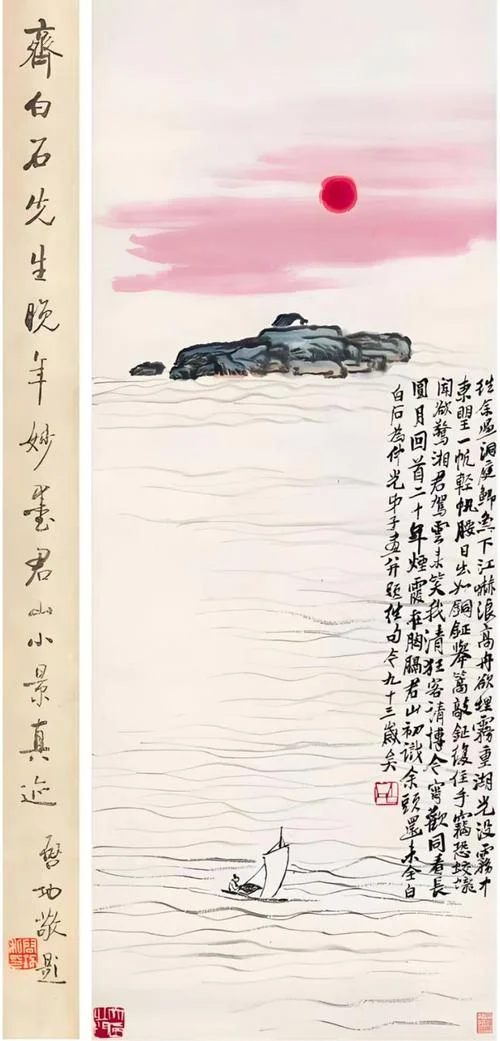 齊白石先生晚年妙畫君山小景真迹
啓功敬題
往余過洞庭鯽魚下江嚇浪高舟欲埋霧重湖光没霧中
東望一帆輕帆腰日出如銅鉦舉篙敲鉦復住手竊恐蛟龍
聞欲驚湘君駕雲來笑我清狂客請博今宵歡同看長
圓月回首二十年煙霞在胸膈君山初識余頭還未全白
白石為仲光弟子畫并題舊句今九十三歲矣